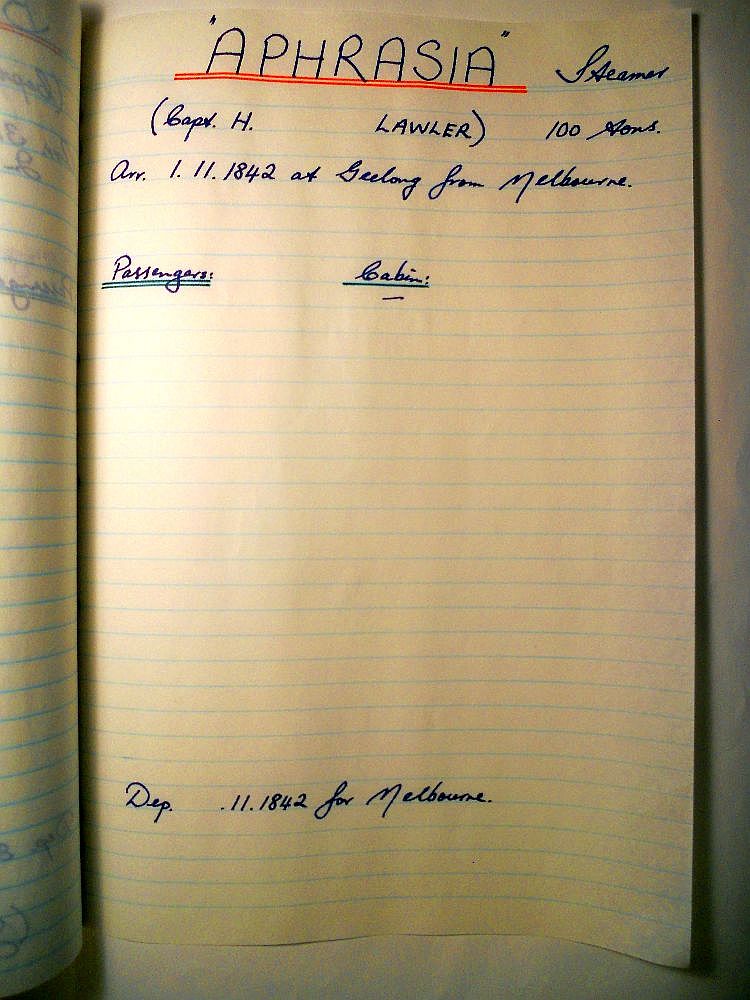 "APHRASIA" Steamer
(Capt. H. LAWLER) 100 tons.
Arr. 1.11.1842 at Geelong from Melbourne.
Passengers: Cabin:
—
Dep. .11.1842 for Melbourne.